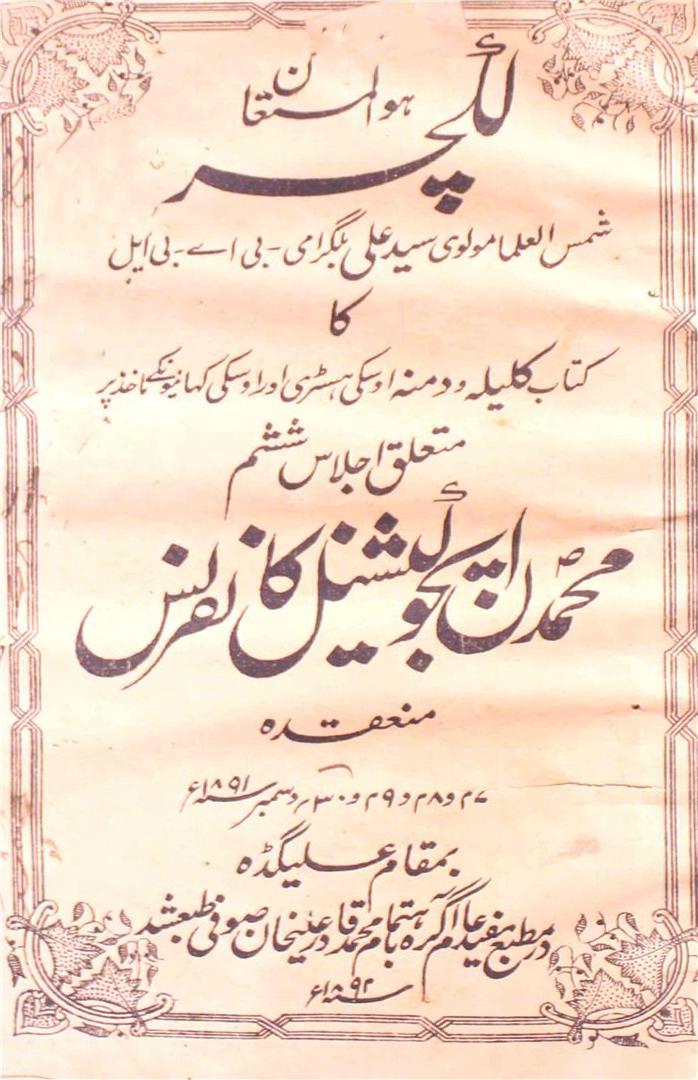 هو المستعان
لکچر
شمس العلما مولوی سید علی بلگرامی - بی اے - بی ایل
کا
کتاب کلیله و دمنه اوسکی هسٹری اور اوسکی کهانیونکے ماخذ پر
متعلق اجلاس ششم
محمدن ایجوکیشنل کانفرنس
منعقده
۲۷ و ۲۸ و ۲۹ و ۳۰ دسمبر سنه ۱۸۹۱ء
بمقام علیگڈه
در مطبع مفید عام آگره باهتمام محمد قادر علیخان صوفی طبع شد
سنه ۱۸۹۲ء